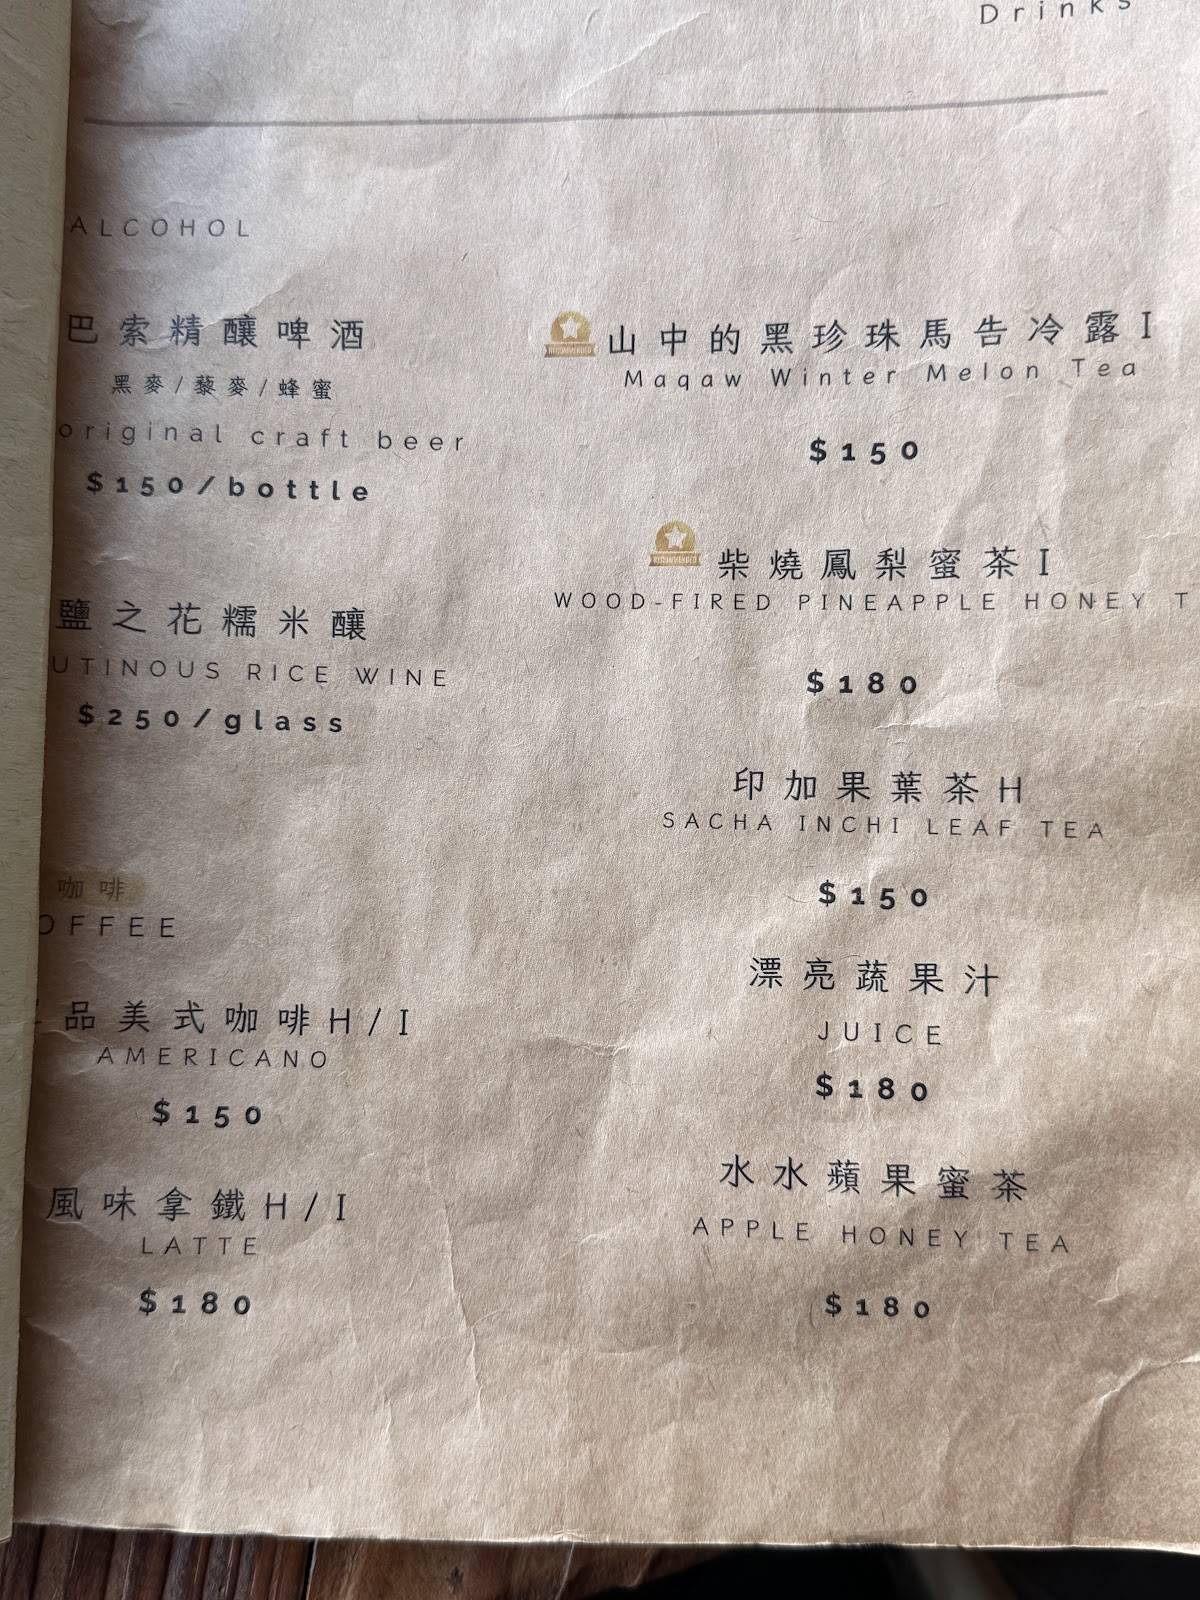 Drinks
ALCOHOL
巴索精釀啤酒
黑麥/藜麥/蜂蜜
original craft beer
$150/bottle
鹽之花糯米釀
UTINOUS RICE WINE
$250/glass
咖啡
OFFEE
品美式咖啡H/I
AMERICANO
$150
風味拿鐵H/I
LATTE
$180
RECOMMENDED
山中的黑珍珠馬告冷露I
Maqaw Winter Melon Tea
$150
RECOMMENDED
柴燒鳳梨蜜茶I
WOOD-FIRED PINEAPPLE HONEY T
$180
印加果葉茶H
SACHA INCHI LEAF TEA
$150
漂亮蔬果汁
JUICE
$180
水水蘋果蜜茶
APPLE HONEY TEA
$180